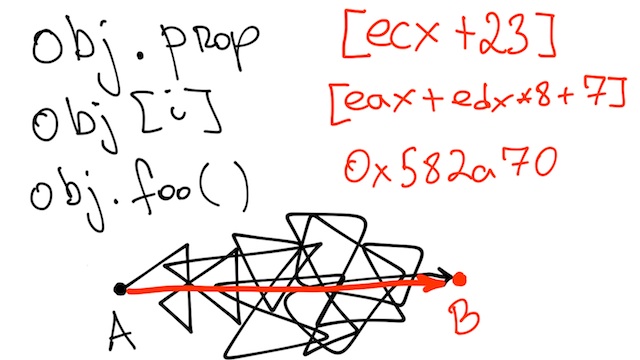 obj.prop
obj[i]
obj.foo()
[ecx+23]
[eax+edx*8+7]
0x582a70
A
B